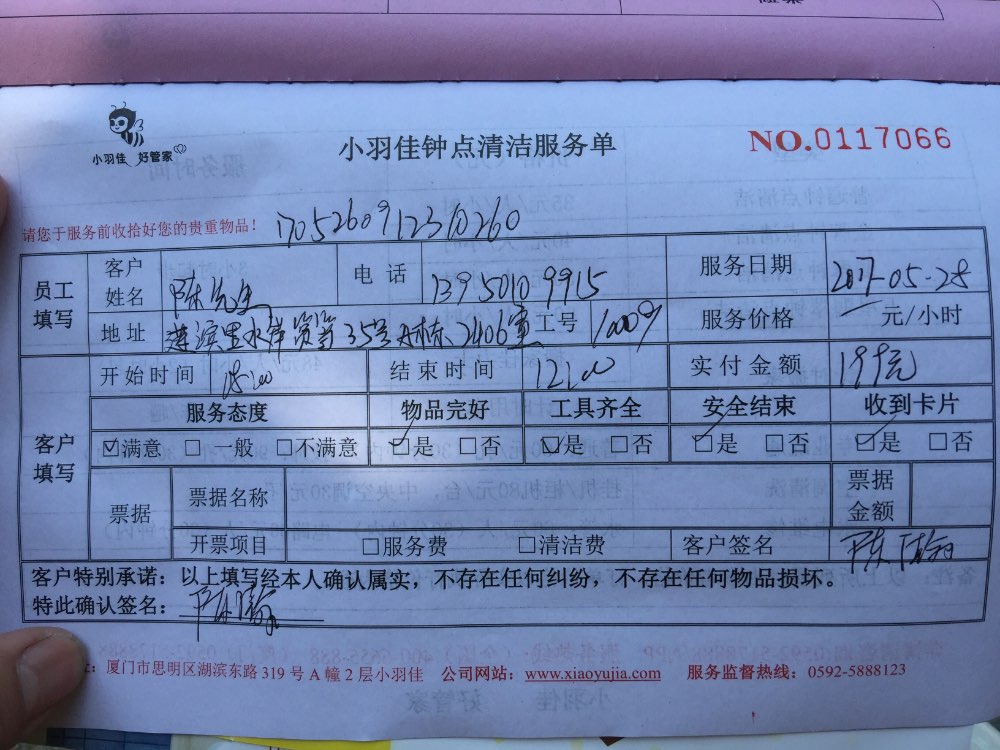 小羽佳 好管家
小羽佳钟点清洁服务单
NO.0117066
请您于服务前收拾好您的贵重物品！ 1705260912310260
员工填写 客户姓名 陈先生 电话 13950109915 服务日期 2017-05-28
地址 莲滨里水岸 35号 2406室 工号 10009 服务价格 元/小时
客户填写 开始时间 结束时间 12:00 实付金额 199元
服务态度 物品完好 工具齐全 安全结束 收到卡片
☑满意 □一般 □不满意 ☑是 □否 ☑是 □否 ☑是 □否 ☑是 □否
票据 票据名称 票据金额
开票项目 □服务费 □清洁费 客户签名 陈
客户特别承诺：以上填写经本人确认属实，不存在任何纠纷，不存在任何物品损坏。
特此确认签名：陈
厦门市思明区湖滨东路 319 号 A 幢 2 层小羽佳 公司网站：www.xiaoyujia.com 服务监督热线：0592-5888123